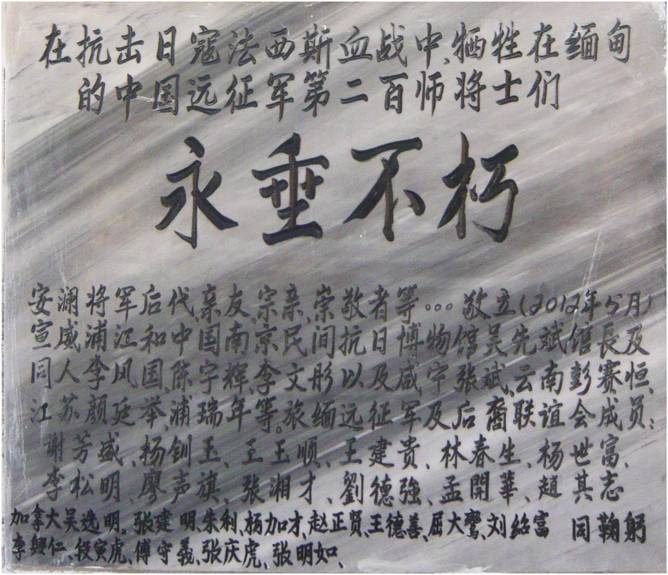 在抗击日寇法西斯血战中、牺牲在缅甸
的中国远征军第二百师将士们
永垂不朽
安澜将军后代亲友、宗亲、崇敬者等…敬立(2012年5月)
宣威浦江和中国南京民间抗日博物馆吴先斌馆長及
同人李凤国、陈宇辉、李文彤以及咸宁张斌、云南彭赛恒、
江苏颜廷举、浦瑞年等。旅缅远征军及后裔联谊会成员:
谢芳盛、杨钊玉、王玉顺、王建贵、林春生、杨世富、
李松明、廖声旗、张湘才、劉德強、孟開華、趙其志
加拿大吴选明、张建明、朱利、杨加才、赵正贤、王德善、屈大鸾、刘绍富 同鞠躬
李興仁、段寅虎、傅守義、张庆虎、張明如、